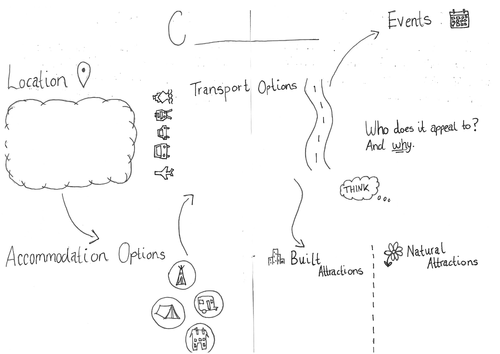 C
Events
Location
Transport Options
Who does it appeal to?
And why.
THINK
Accommodation Options
Built
Attractions
Natural
Attractions